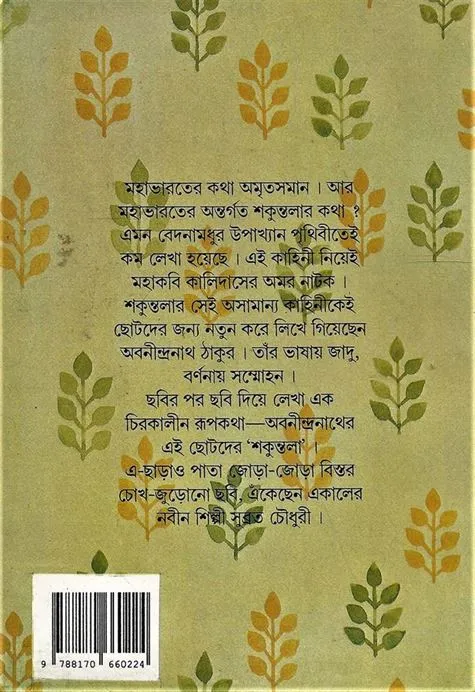 মহাভারতের কথা অমৃতসমান । আর
মহাভারতের অন্তর্গত শকুন্তলার কথা ?
এমন বেদনামধুর উপাখ্যান পৃথিবীতেই
কম লেখা হয়েছে । এই কাহিনী নিয়েই
মহাকবি কালিদাসের অমর নাটক ।
শকুন্তলার সেই অসামান্য কাহিনীকেই
ছোটদের জন্য নতুন করে লিখে গিয়েছেন
অবনীন্দ্রনাথ ঠাকুর । তাঁর ভাষায় জাদু,
বর্ণনায় সম্মোহন ।
ছবির পর ছবি দিয়ে লেখা এক
চিরকালীন রূপকথা—অবনীন্দ্রনাথের
এই ছোটদের ‘শকুন্তলা’ ।
এ-ছাড়াও পাতা জোড়া-জোড়া বিস্তর
চোখ-জুড়োনো ছবি, এঁকেছেন একালের
নবীন শিল্পী সুব্রত চৌধুরী ।
9 788170 660224